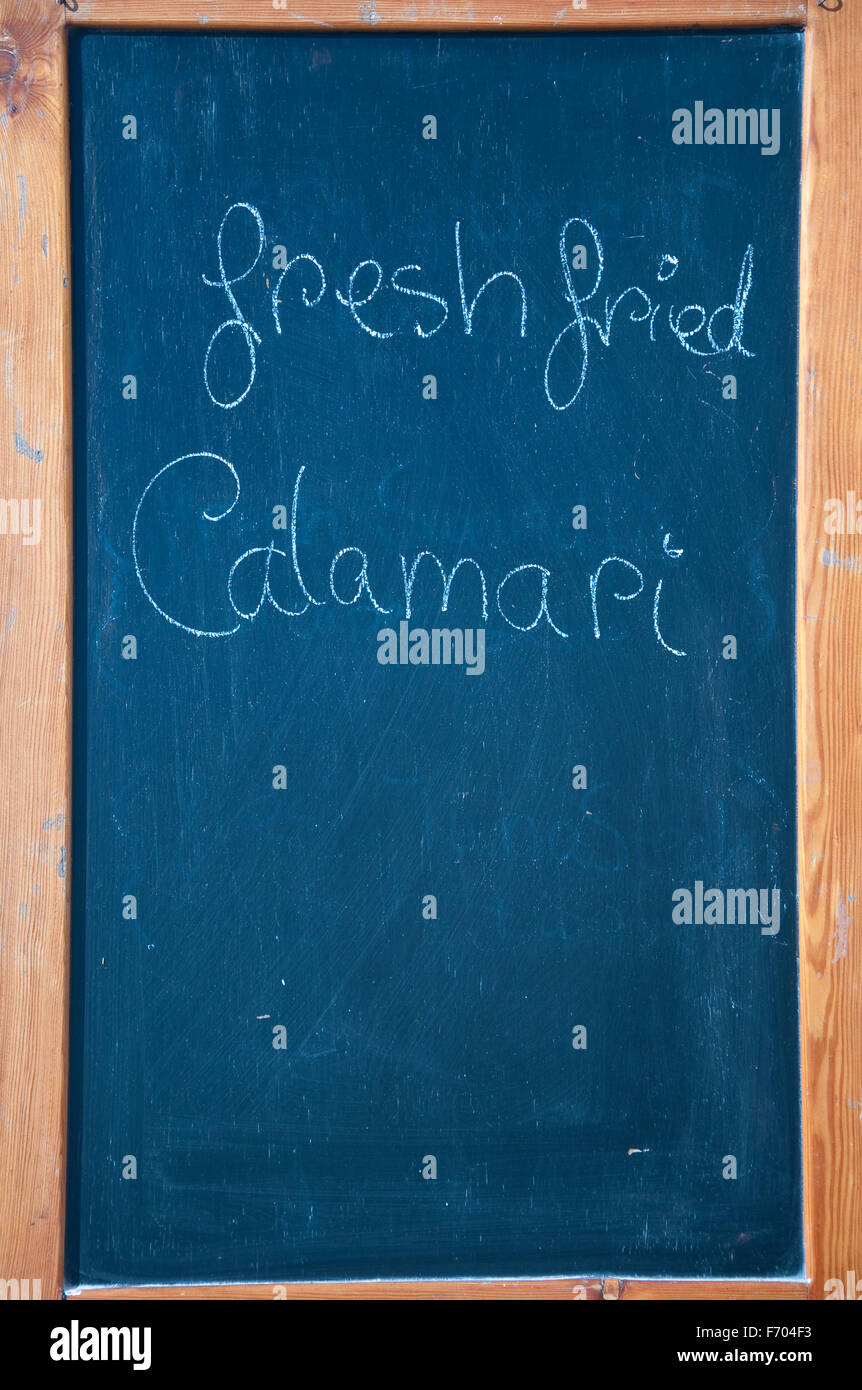 fresh fried
Calamari
alamy
alamy
alamy
a
a
a
a
alamy
Image ID: F704F3
www.alamy.com